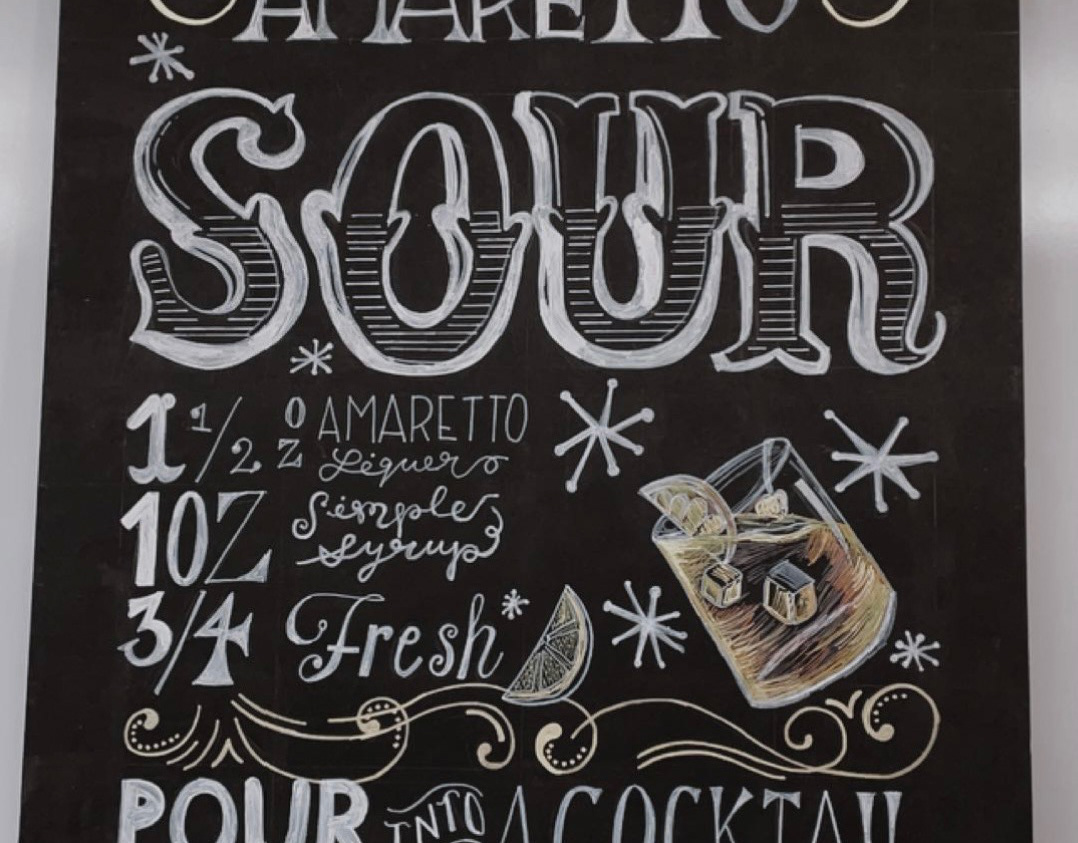 AMARETTO
SOUR
1 1/2 OZ AMARETTO
Liquero
1 OZ Simple
Syrup
3/4 Fresh
POUR INTO A COCKTAIL